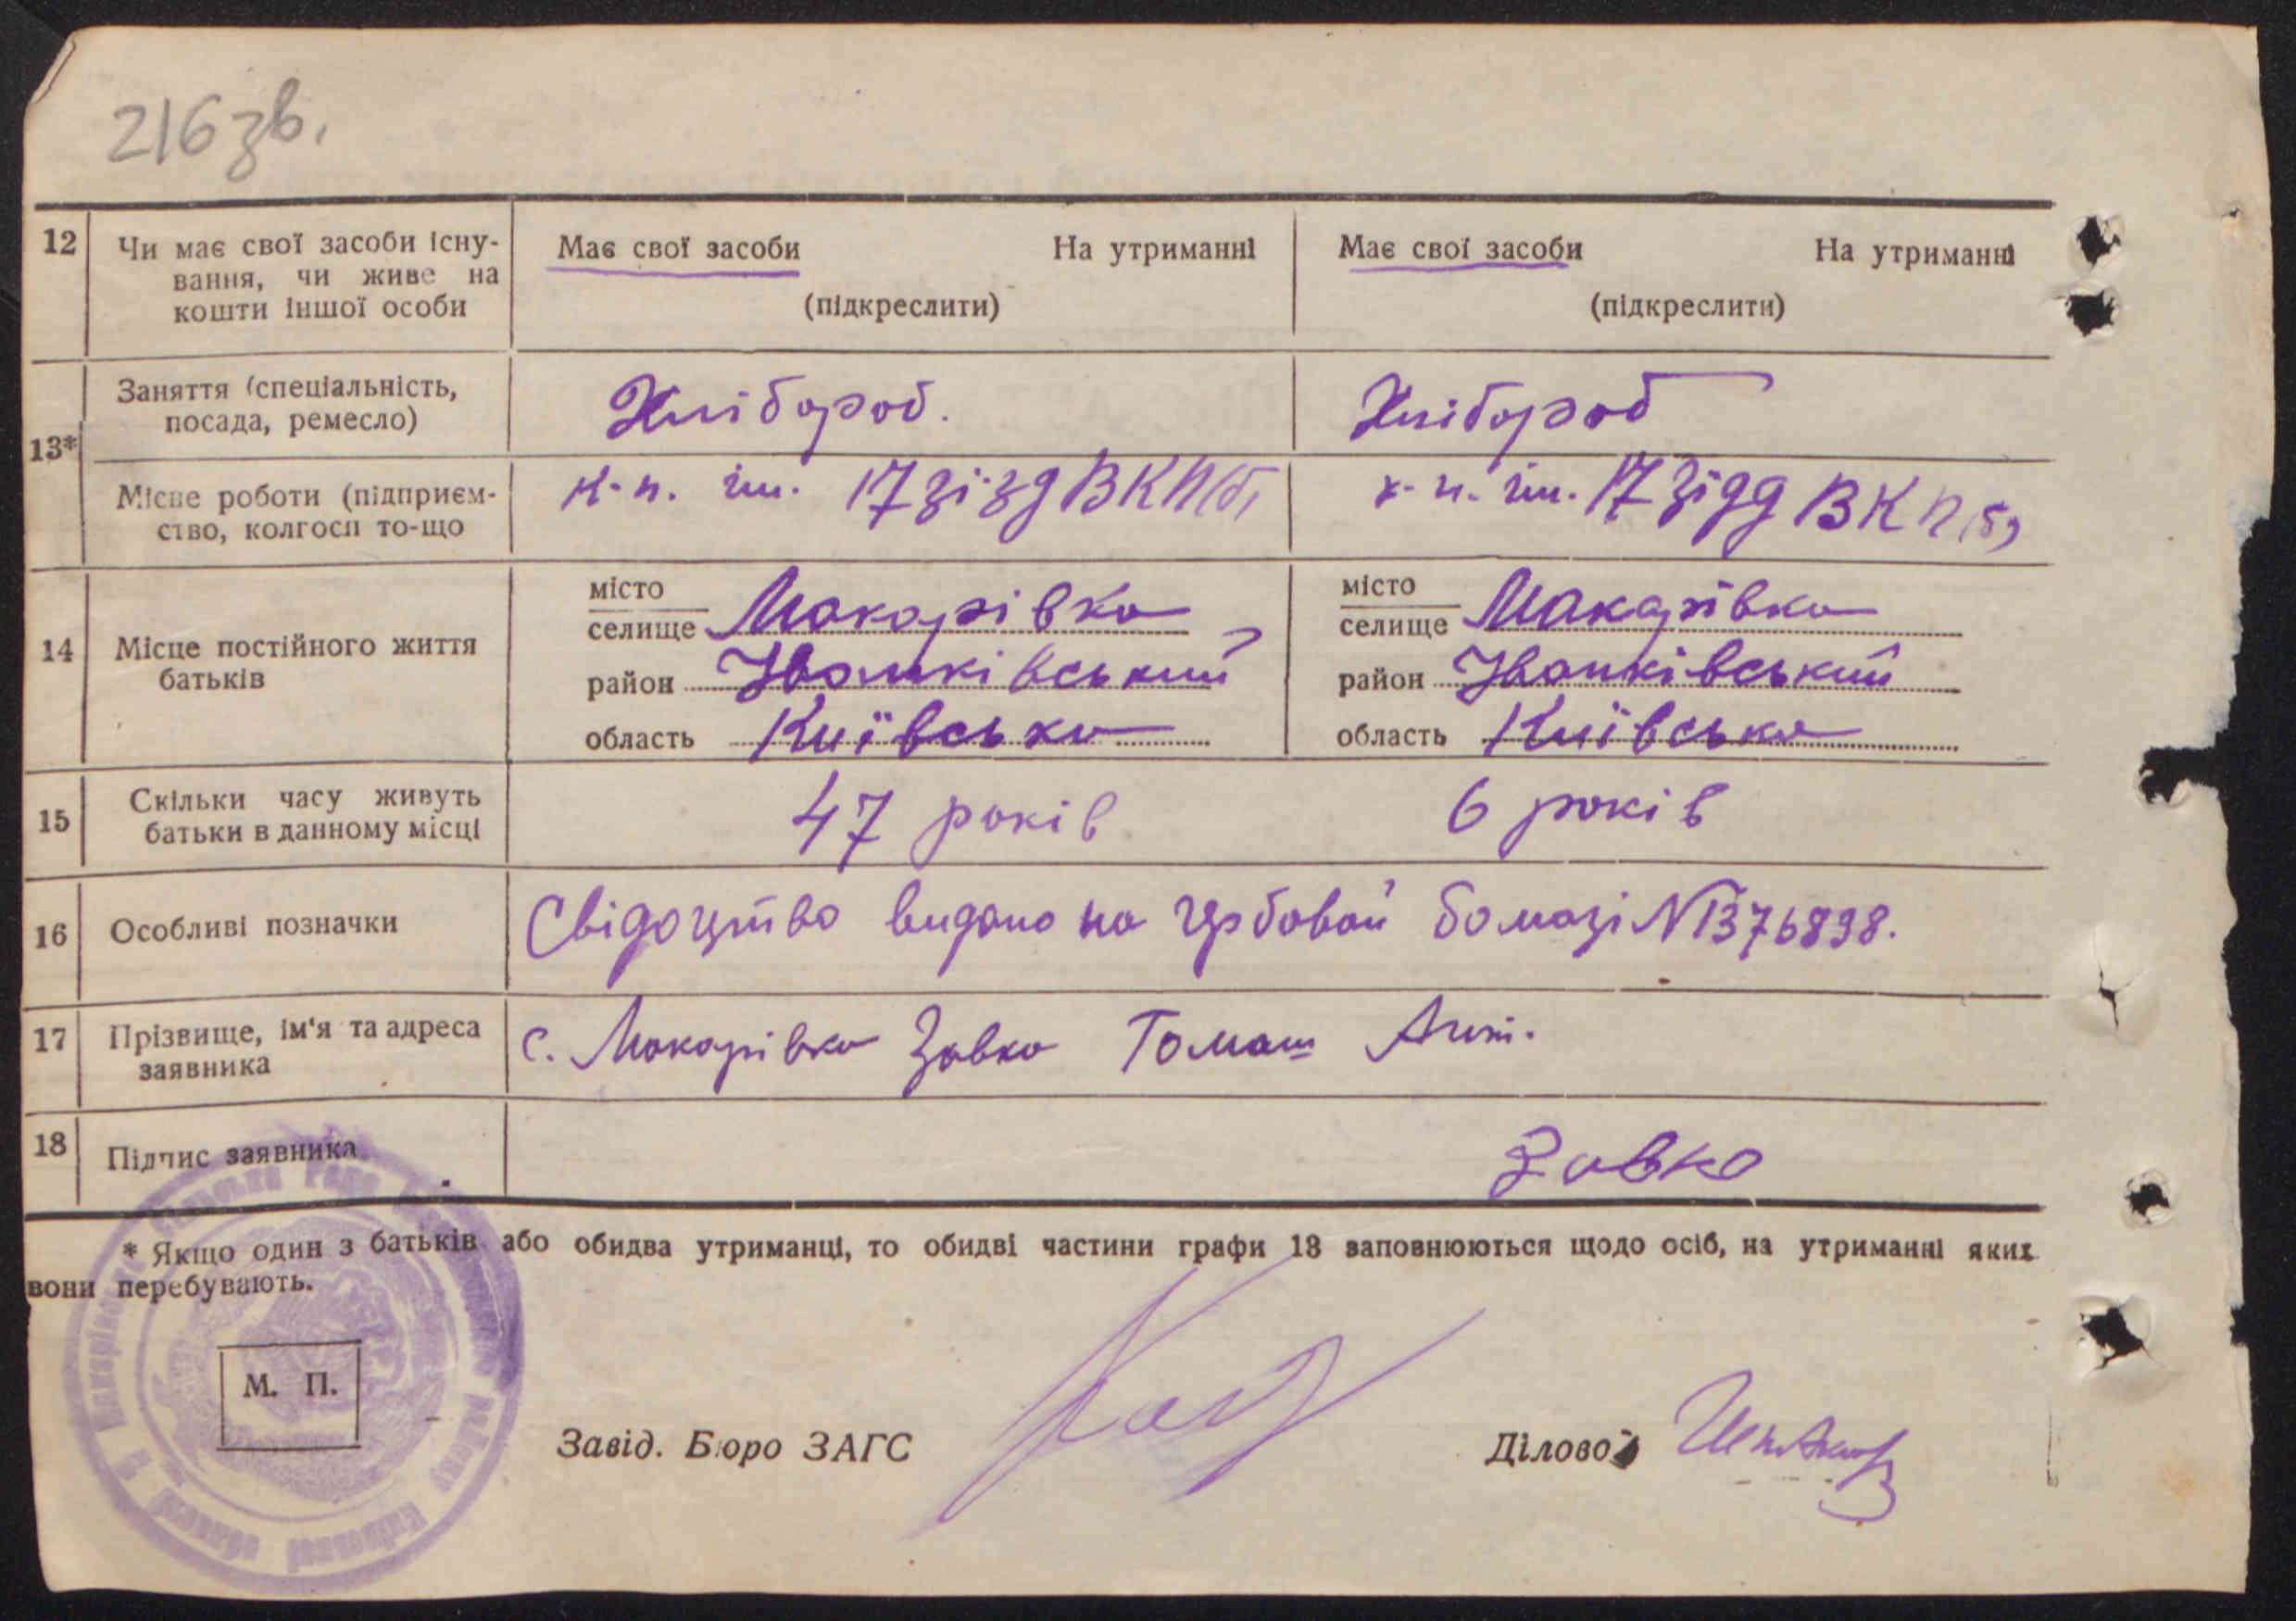 216 зв.
12 Чи має свої засоби існу- Має свої засоби На утриманні Має свої засоби На утриманні
вання, чи живе на
кошти іншої особи (підкреслити) (підкреслити)
Заняття (спеціальність, Хлібороб. Хлібороб
посада, ремесло)
13*
Місце роботи (підприєм- к-п. ім. 17 зізд ВКП(б) к-п. ім. 17 зізд ВКП(б)
ство, колгосп то-що
місто місто
селище Макарівка селище Макарівка
14 Місце постійного життя район Іванківський район Іванківський
батьків
область Київська область Київська
15 Скільки часу живуть 47 років 6 років
батьки в данному місці
16 Особливі позначки Свідоцтво видано на гербовой бомазі № В 376898.
17 Прізвище, ім'я та адреса с. Макарівка Завко Томаш Ант.
заявника
18 Підпис заявника Завко
* Якщо один з батьків або обидва утриманці, то обидві частини графи 13 заповнюються щодо осіб, на утриманні яких
вони перебувають.
М. П.
Завід. Бюро ЗАГС Діловод